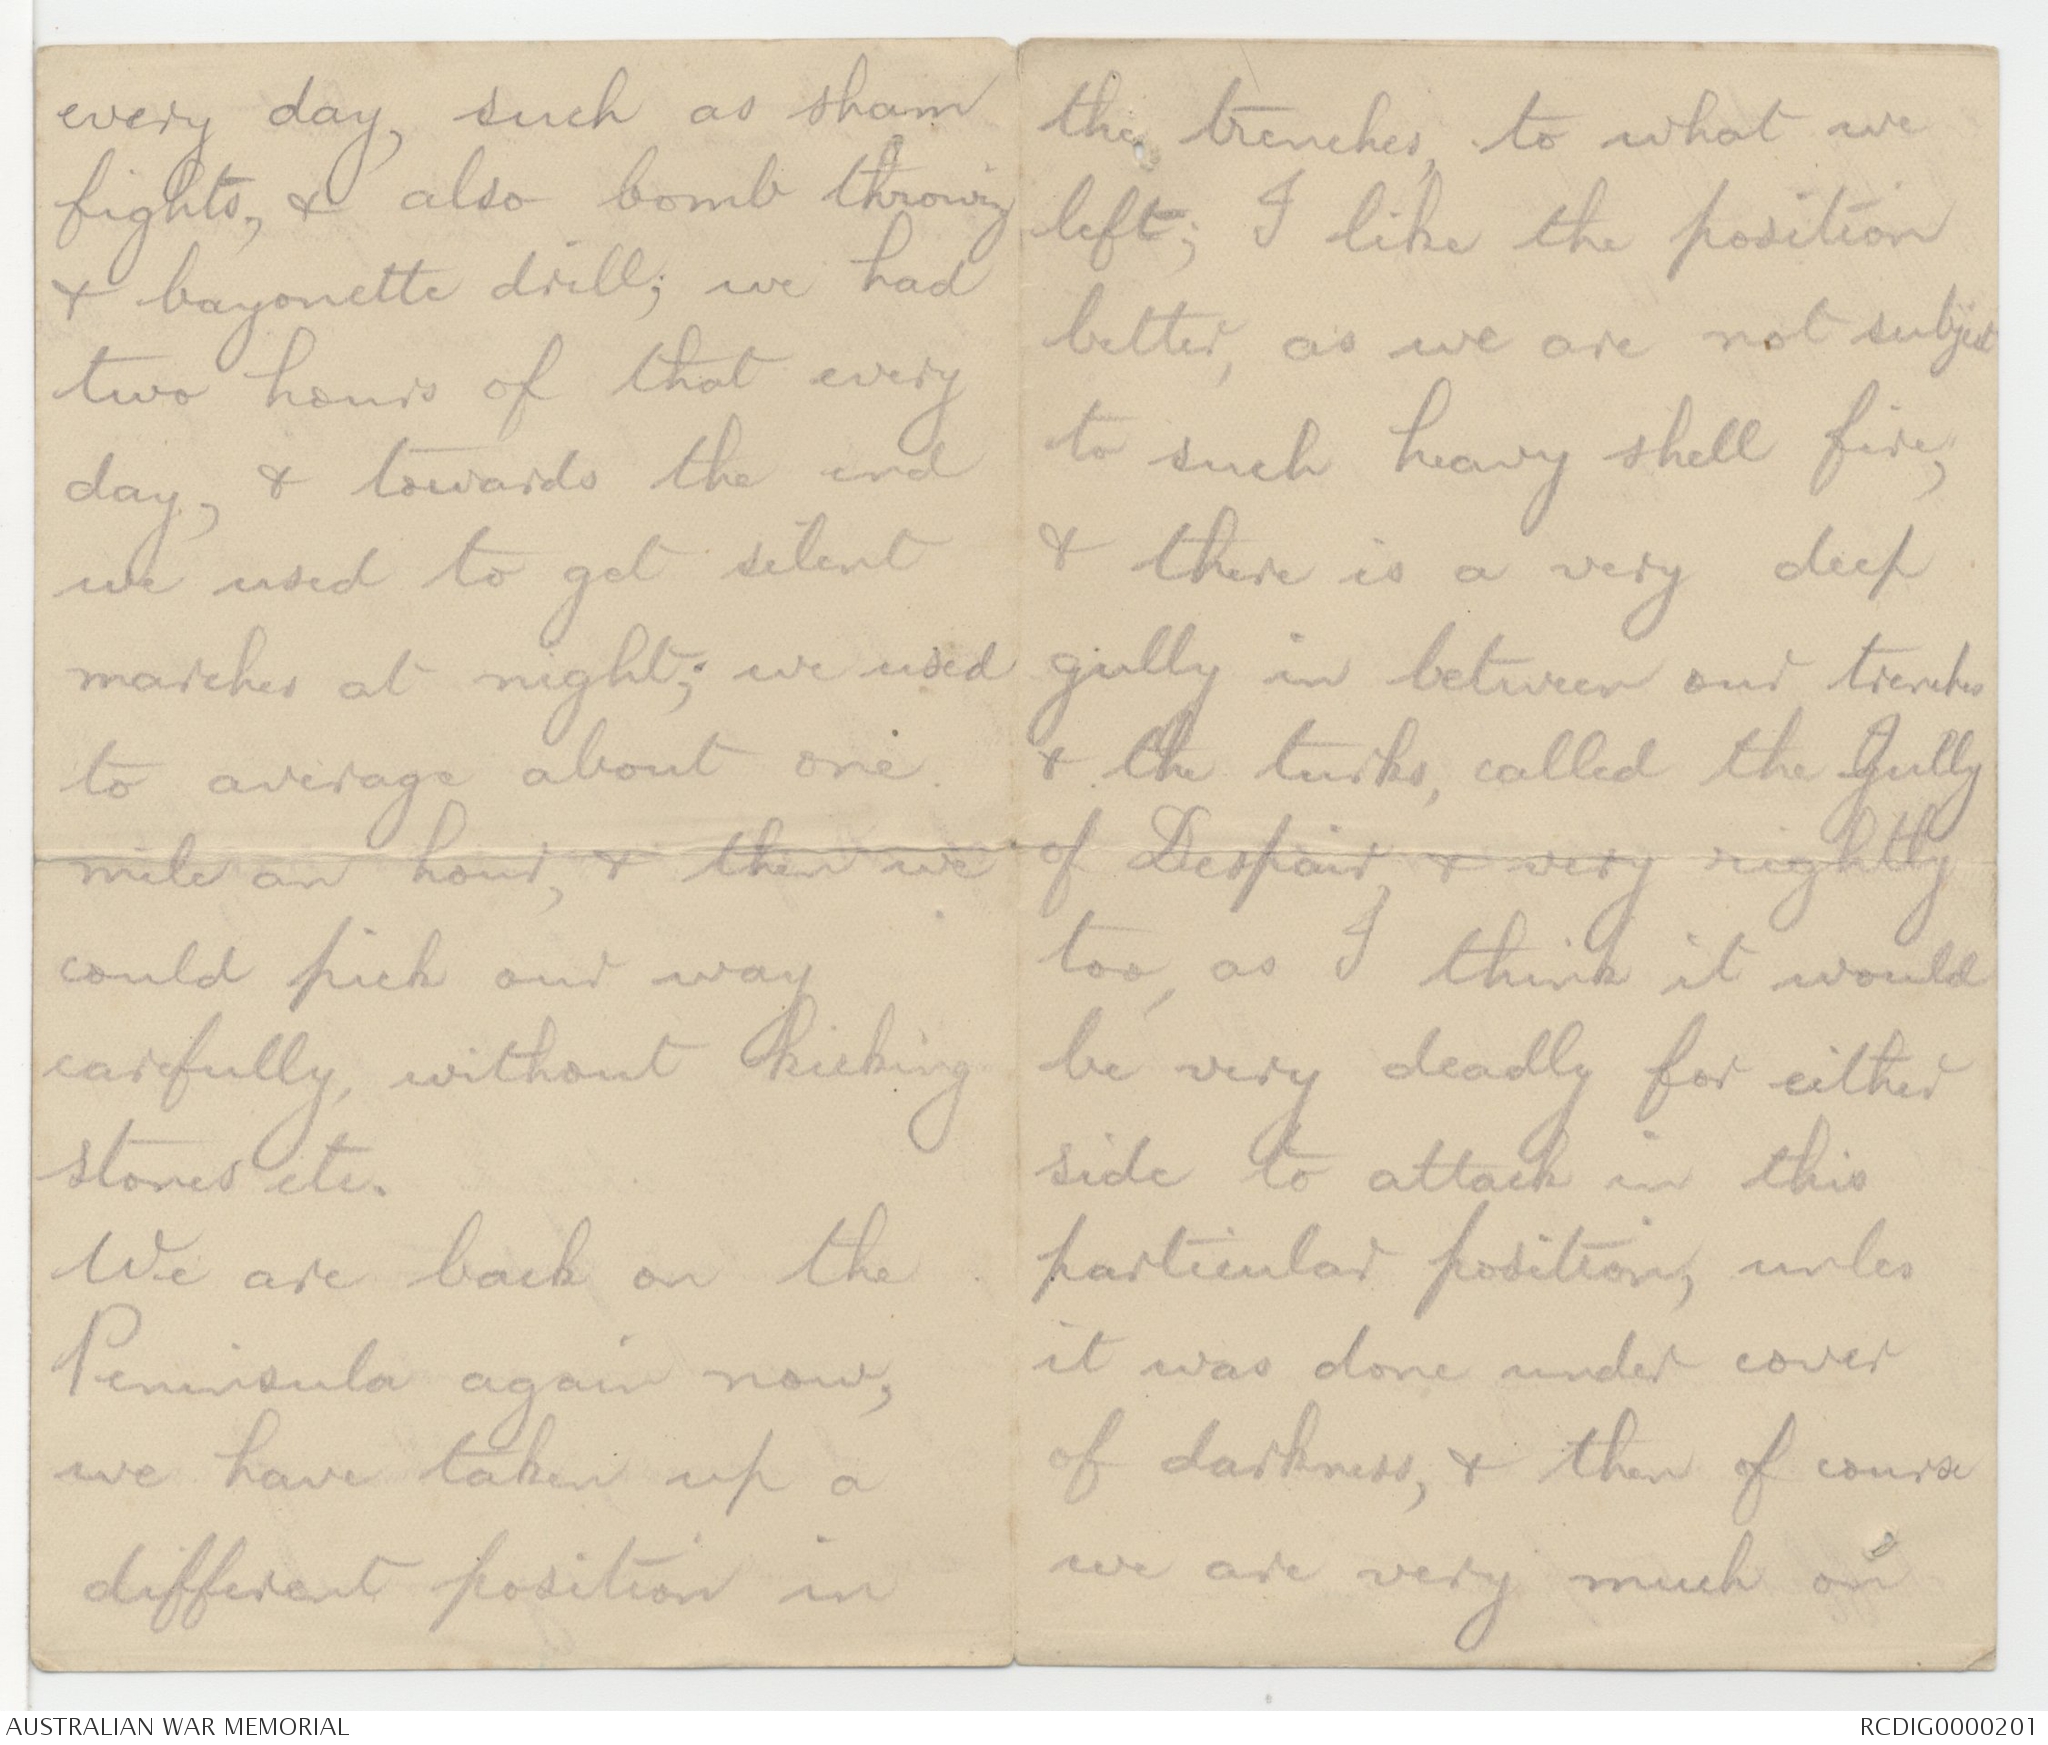 every day, such as sham
fights, & also bomb throwing
& bayonette drill; we had
two hours of that every
day, & towards the end
we used to get silent
marches at night; we used
to average about one
mile an hour, & then we
could pick our way
carefully, without kicking
stones etc.
We are back on the
Peninsula again now,
we have taken up a
different position in
the trenches, to what we
left; I like the position
better, as we are not subject
to such heavy shell fire,
& there is a very deep
gully in between our trenches
& the turks, called the Gully
of Despair, & very rightly
too, as I think it would
be very deadly for either
side to attack in this
particular position, unles
it was done under cover
of darkness, & then of course
we are very much on
AUSTRALIAN WAR MEMORIAL
RCDIG0000201